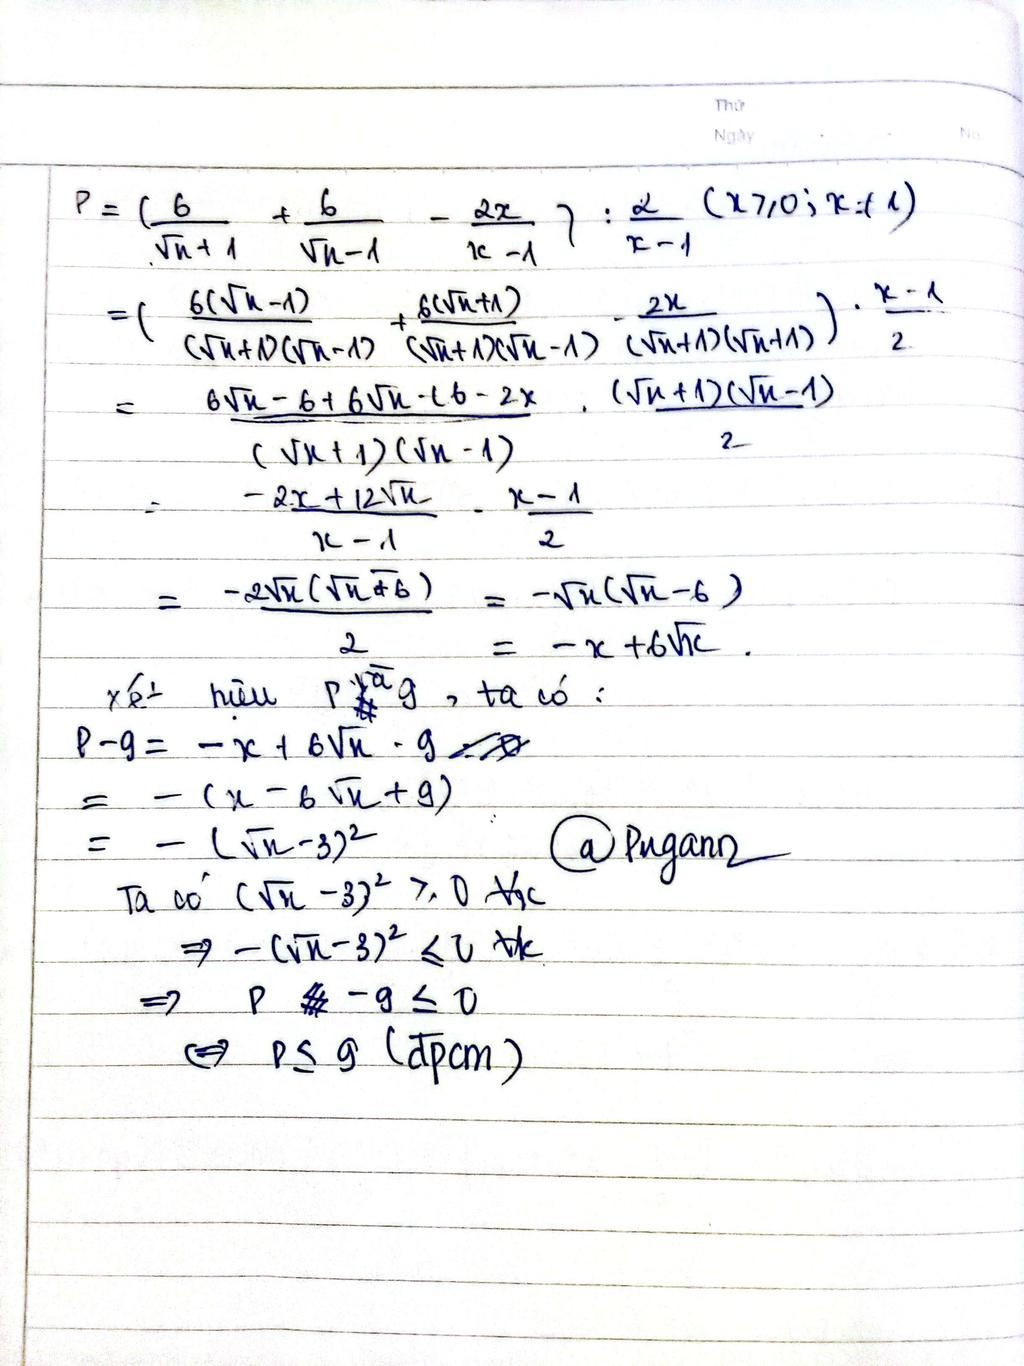 Thứ
Ngày No
P = ( 6/(√x+1) + 6/(√x-1) - 2x/(x-1) ) : 2/(x-1) (x ≥ 0; x ≠ 1)
= ( 6(√x-1)/((√x+1)(√x-1)) + 6(√x+1)/((√x+1)(√x-1)) - 2x/((√x+1)(√x+1)) ) . (x-1)/2
= (6√x - 6 + 6√x + 6 - 2x)/((√x+1)(√x-1)) . ((√x+1)(√x-1))/2
= (-2x + 12√x)/(x-1) . (x-1)/2
= -2√x(√x-6)/2 = -√x(√x-6)
= -x + 6√x .
xét hiệu P và 9, ta có:
P-9 = -x + 6√x - 9
= -(x - 6√x + 9)
= -(√x-3)²
@Pngann
Ta có (√x-3)² ≥ 0 ∀x
⇒ -(√x-3)² ≤ 0 ∀x
⇒ P -9 ≤ 0
⇔ P ≤ 9 (đpcm)